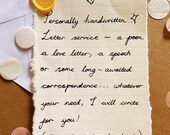 Personally handwritten
Letter service ~ a poem,
a love letter, a speech
or some long-awaited
correspondence... whatever
your need, I will write
for you!